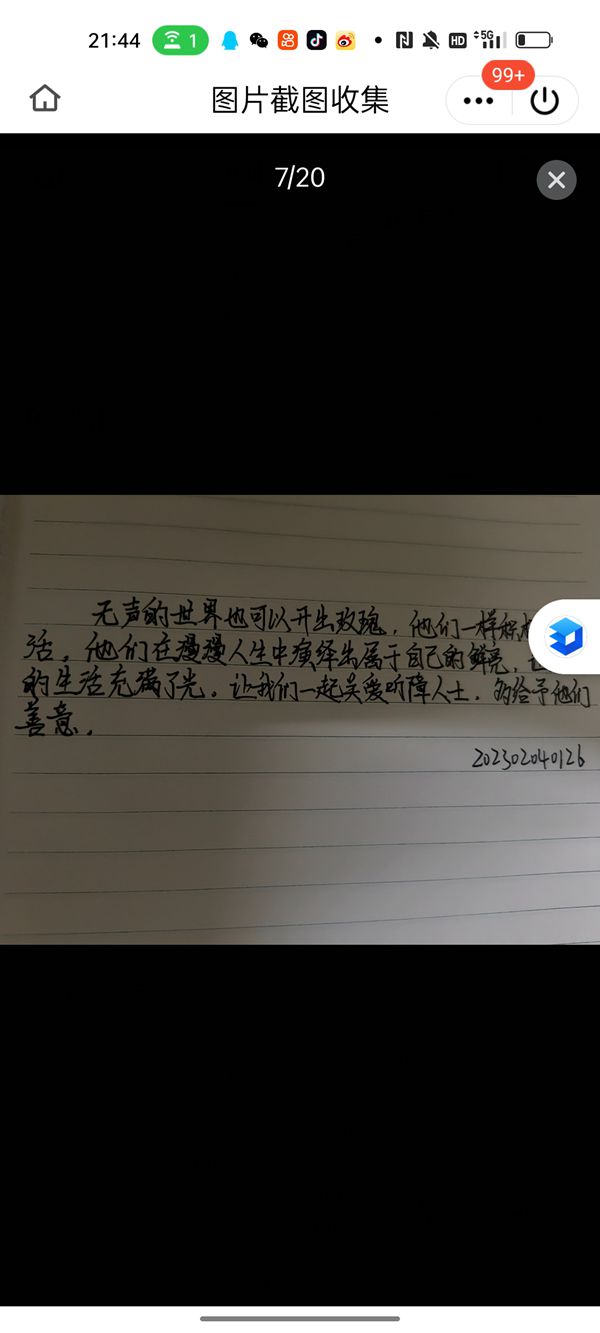 21:44
1
HD
5G
图片截图收集
99+
7/20
无声的世界也可以开出玫瑰，他们一样积
活。他们在漫漫人生中演绎出属于自己的鲜亮，
的生活充满了光。让我们一起关爱听障人士，多给予他们
善意。
202302040126